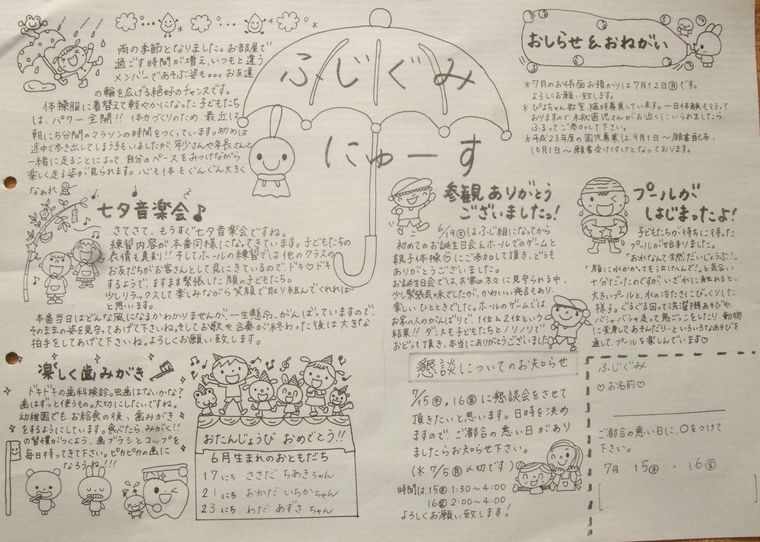 ふじぐみ
にゅーす
雨の季節となりました。お部屋で
過ごす時間が増え、いつもと違う
メンバーであそぶ姿も。。。お友達
の輪を広げる絶好のチャンスです。
体操服に着替えて軽やかになった子どもたち
は、パワー全開!! 体力づくりのため、最近は
朝に5分間のマラソンの時間をつくっています。初めは
途中で歩き出してしまう子もいましたが、年少さんや年長さんと
一緒に走ることによって、自分のペースをみつけながら
楽しく走る姿が見られます。心も体もぐんぐん大きく
なぁれ
七夕音楽会♪
さてさて、もうすぐ七夕音楽会ですね。
練習内容が本番同様になってきています。子どもたちの
表情も真剣!! そしてホールの練習では他のクラスの
お友だちがお客さんとして見にきているので、ドキ♡ドキ
するようで、ますます緊張した顔の子どもたち。
少しリラックスして楽しみながら笑顔で取り組んでくれればと
思います。
本番当日はどんな風になるかわかりませんが、一生懸命、がんばっていますので、
そのままの姿を見守ってあげて下さいね。そしてお歌や合奏が終わった後は大きな
拍手をしてあげて下さいね。よろしくお願い致します。
楽しく歯みがき
ドキドキの歯科検診。虫歯はないかな?
歯はずっと使うもの。大切にしたいですね。
幼稚園でもお給食の後、歯みがき
をするようにしています。食べたら、みがく!!
の習慣がつくよう、歯ブラシとコップを
毎日持ってきて下さい。ピカピカの歯に
なろうね!!!
おたんじょうび おめでとう!!
6月生まれのおともだち
17にち ささだ ちあきちゃん
21にち おかだ いちかちゃん
23にち わだ あずさちゃん
おしらせ&おねがい
*7月のお帳面お預かりは7月12日(月)です。
よろしくお願い致します。
*ぴよちゃん教室、随時募集しています。一日体験も行って
おりますので未就園児さんがお近くにいられましたら、
ふるってご参加して下さい。
*平成23年度の園児募集は、9月1日〜願書配布、
10月1日〜願書受け付けとなっております。
参観ありがとう
ございましたっ!
6/19(土)はふじ組になってから
初めてのお誕生日会&ホールでのゲームと
親子体操
にご参加して頂き、どうも
ありがとうございました。
お誕生日会では、お家の方々に見守られる中、
少し緊張気味でしたが、かわいい発表もあり、
楽しいひとときでした。ホールのゲームでは、
お家の人のがんばりで、1位&2位という
結果!! ダンスも子どもたちとノリノリで
おどって頂き、本当にありがとうございました
プールが
はじまったよ!
子どもたちが待ちに待った
プールが始まりました。
「お水なんて全然だいじょうぶ!」
「顔に水かかっても泣けへんで!」と気合い
十分だったのですが、いざ水に触れると、
大きいプールと、水の冷たさにびっくりした
様子。ぐるぐる回って洗濯機あそびや、
バシャバシャ走って鬼ごっこをしたり、動物
に変身してあそんだり…といろいろなあそびを
通して、プールを楽しんでいます♡
懇談についてのお知らせ
7/15(木)、16(金)に懇談会をさせて
頂きたいと思います。日時を決め
ますので、ご都合の悪い日があり
ましたらお知らせ下さい。
(*7/5(月)〆切です)
時間は、15(木) 1:30〜4:00
16(金) 2:00〜4:00
よろしくお願い致します!
ふじぐみ
♡お名前♡
ご都合の悪い日に、○をつけて
下さい。
7月 15(木) ・ 16(金)